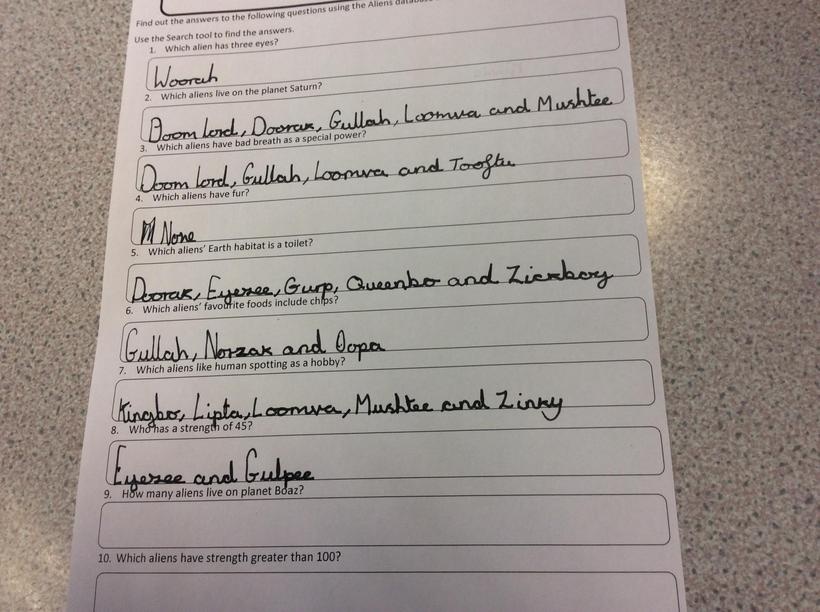 Find out the answers to the following questions using the Aliens
Use the Search tool to find the answers.
1. Which alien has three eyes?
Woorah
2. Which aliens live on the planet Saturn?
Doom Lord, Doorax, Gullah, Loomva and Mushtee
3. Which aliens have bad breath as a special power?
Doom Lord, Gullah, Loomva and
4. Which aliens have fur?
None
5. Which aliens' Earth habitat is a toilet?
Doorax, Eyezee, Gurp, Queenbo and
6. Which aliens' favourite foods include chips?
Gullah, Norzak and Oopa
7. Which aliens like human spotting as a hobby?
Kingbo, Lipta, Loomva, Mushtee and Zinky
8. Who has a strength of 45?
Eyezee and Gulpee
9. How many aliens live on planet Boaz?
10. Which aliens have strength greater than 100?